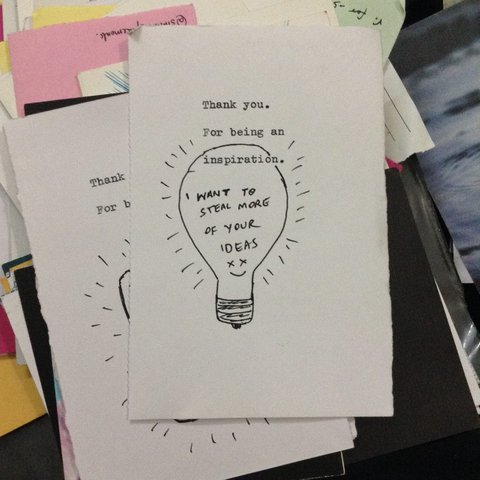 Thank you.
For being an
inspiration.
I WANT TO
STEAL MORE
OF YOUR
IDEAS
xx
Thank
For b